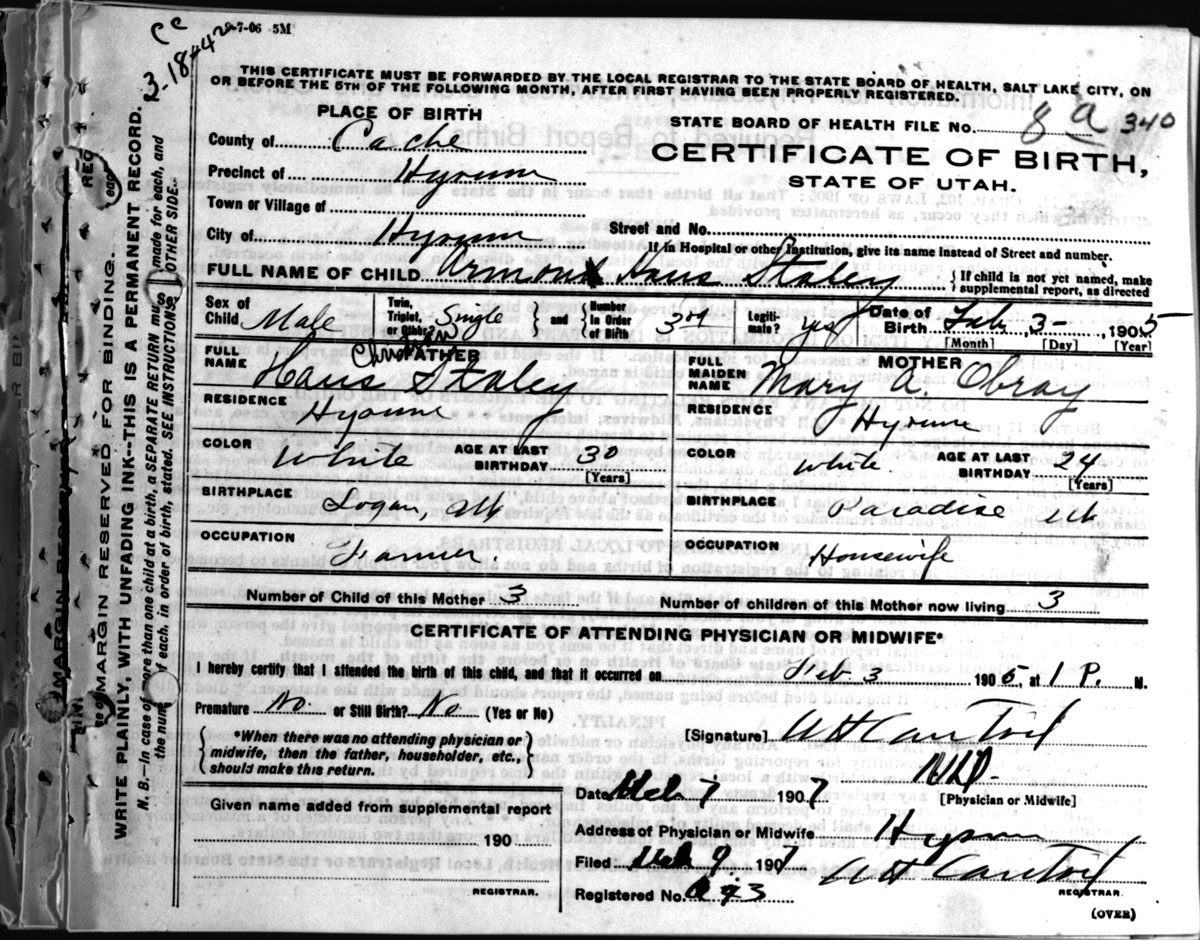 Cc
3-18-42
9-7-06 5M
THIS CERTIFICATE MUST BE FORWARDED BY THE LOCAL REGISTRAR TO THE STATE BOARD OF HEALTH, SALT LAKE CITY, ON
OR BEFORE THE 5TH OF THE FOLLOWING MONTH, AFTER FIRST HAVING BEEN PROPERLY REGISTERED.
PLACE OF BIRTH
STATE BOARD OF HEALTH FILE No. 8 a 340
County of Cache
CERTIFICATE OF BIRTH,
Precinct of Hyrum
STATE OF UTAH.
Town or Village of
City of Hyrum
Street and No.
If in Hospital or other Institution, give its name instead of Street and number.
FULL NAME OF CHILD Armond Hans Staley
{ If child is not yet named, make
supplemental report, as directed
Sex of Child Male
Twin, Triplet, or Other? Single } and { Number in Order of Birth 3rd
Legitimate? yes
Date of Birth Feb 3- , 1905
[Month] [Day] [Year]
FATHER
FULL NAME Hans Christian Staley
MOTHER
FULL MAIDEN NAME Mary A. Obray
RESIDENCE Hyrum
RESIDENCE Hyrum
COLOR White AGE AT LAST BIRTHDAY 30
[Years]
COLOR White AGE AT LAST BIRTHDAY 24
[Years]
BIRTHPLACE Logan, Ut
BIRTHPLACE Paradise Ut
OCCUPATION Farmer
OCCUPATION Housewife
Number of Child of this Mother 3
Number of children of this Mother now living 3
CERTIFICATE OF ATTENDING PHYSICIAN OR MIDWIFE*
I hereby certify that I attended the birth of this child, and that it occurred on Feb. 3 1905, at 1 P. M.
Premature No. or Still Birth? No (Yes or No)
{ *When there was no attending physician or
midwife, then the father, householder, etc.,
should make this return. }
[Signature]
M.D.
[Physician or Midwife]
Date Mch 7 1907
Given name added from supplemental report
190
REGISTRAR.
Address of Physician or Midwife Hyrum
Filed Mch 9 1907
REGISTRAR.
Registered No.
(OVER)
MARGIN RESERVED FOR BINDING.
WRITE PLAINLY, WITH UNFADING INK--THIS IS A PERMANENT RECORD.
N. B.—In case of more than one child at a birth, a SEPARATE RETURN must be made for each, and
the number of each, in order of birth, stated. SEE INSTRUCTIONS ON OTHER SIDE.